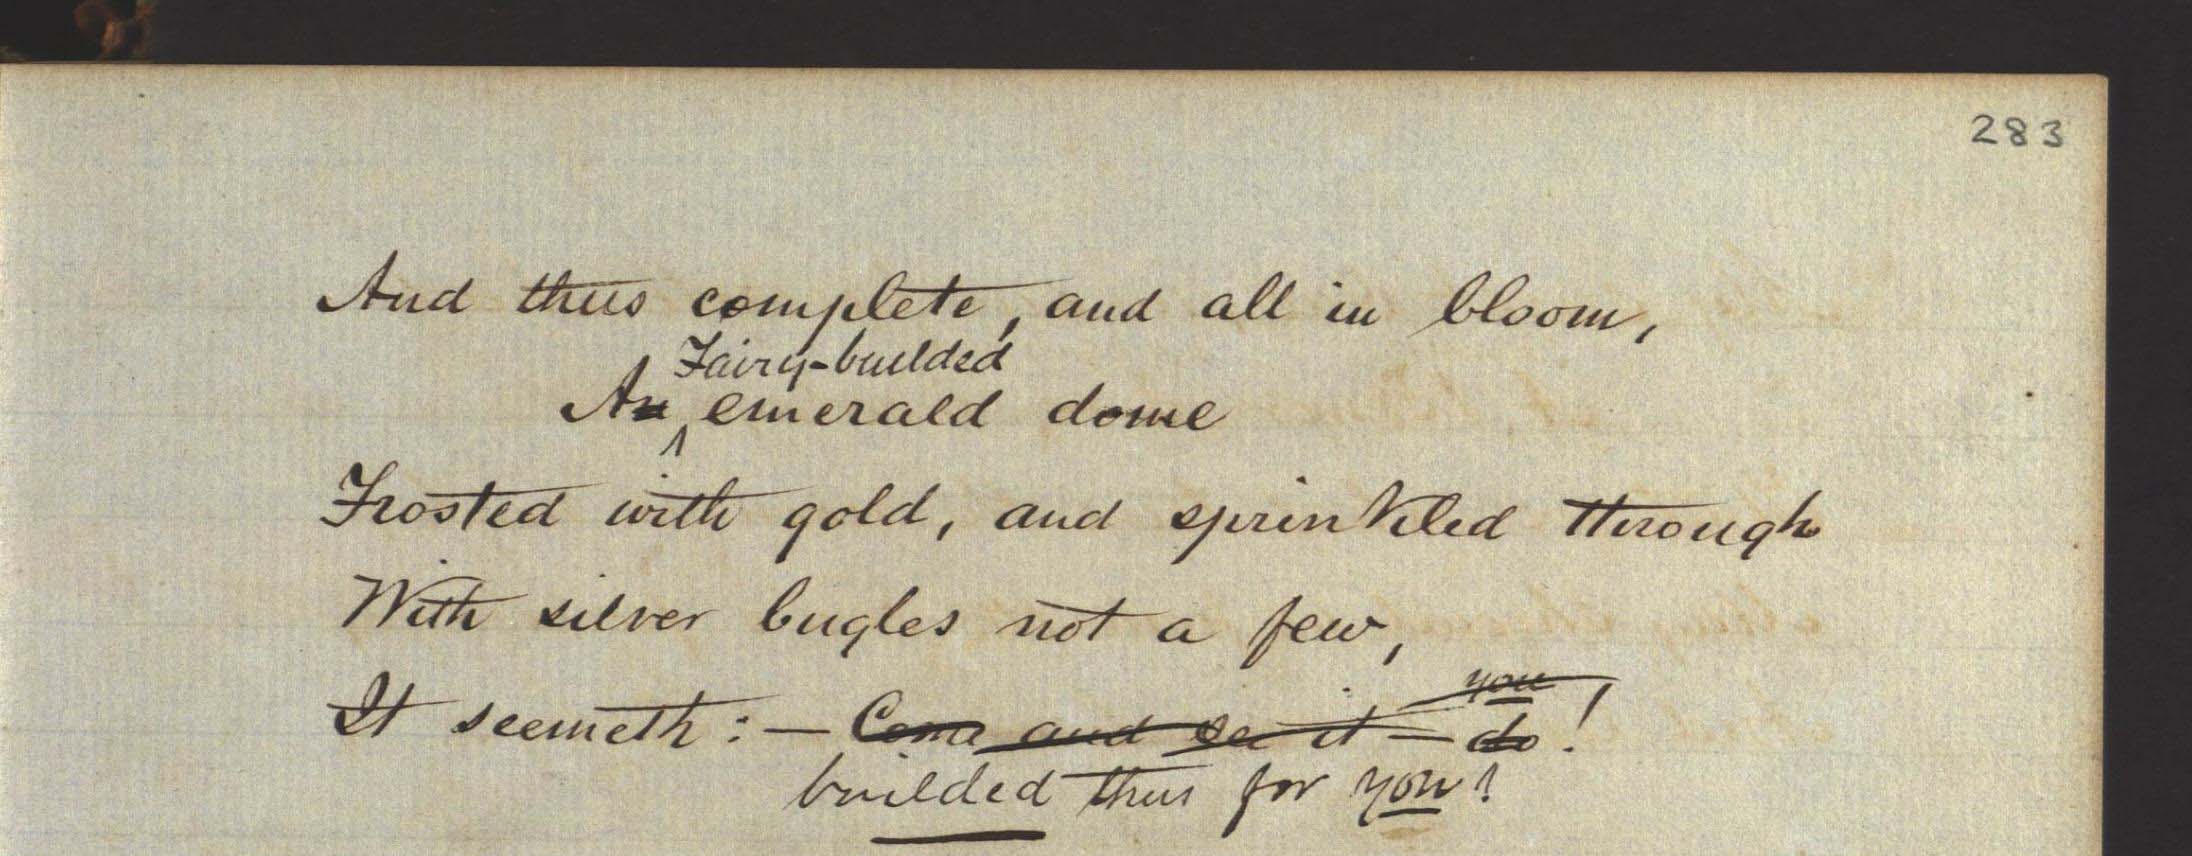 283
And thus complete, and all in bloom,
Fairy-builded
An emerald dome
Frosted with gold, and sprinkled through
With silver bugles not a few,
you
It seemeth :— Come and see it — do!
builded thus for you!